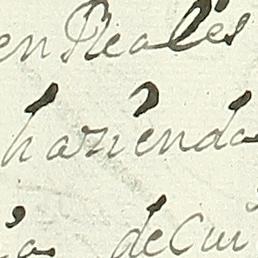 en Reales
hazienda
de Cui